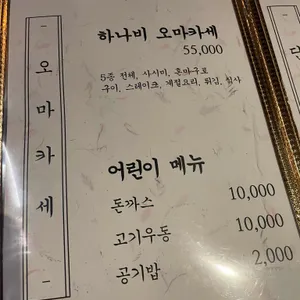 오마카세
하나비 오마카세
55,000
5종 전채, 사시미, 혼마구로
구이, 스테이크, 계절요리, 튀김, 식사
어린이 메뉴
돈까스 10,000
고기우동 10,000
공기밥 2,000
단